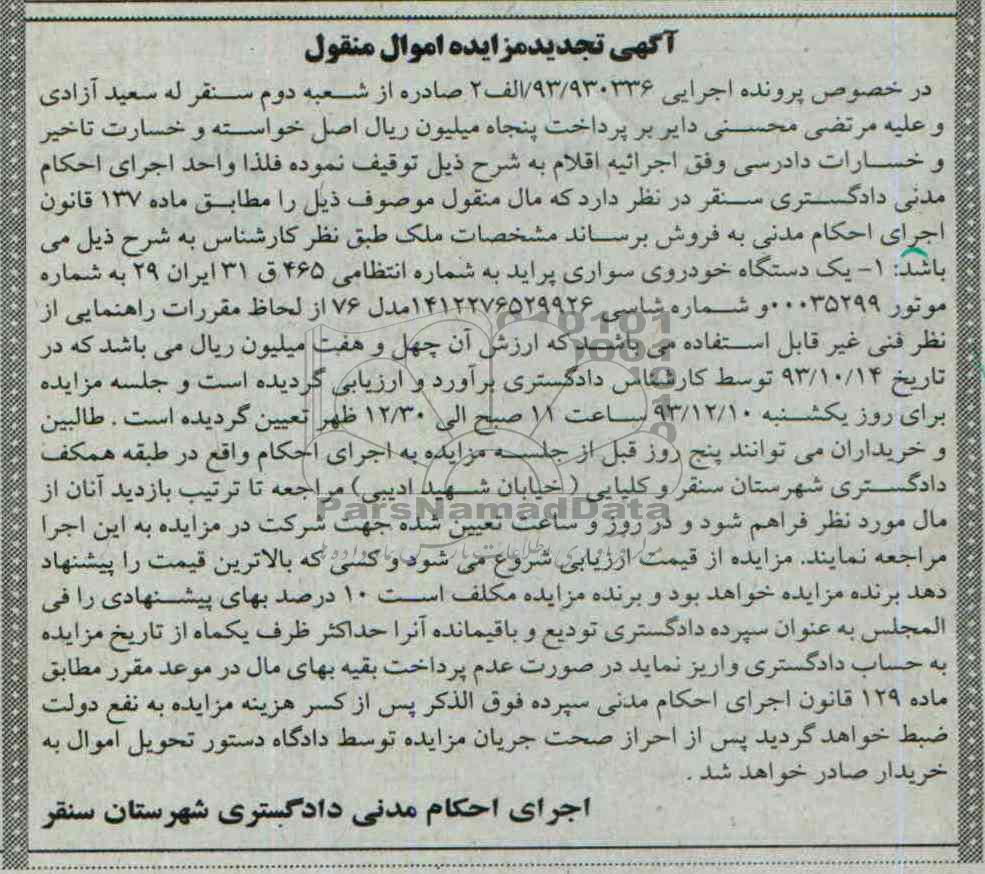 آگهی تجدیدمزایده اموال منقول
در خصوص پرونده اجرایی ۹۳/۹۳۰۳۳۶/الف۲ صادره از شعبه دوم سنقر له سعید آزادی
و علیه مرتضی محسنی دایر بر پرداخت پنجاه میلیون ریال اصل خواسته و خسارت تاخیر
و خسارات دادرسی وفق اجرائیه اقلام به شرح ذیل توقیف نموده فلذا واحد اجرای احکام
مدنی دادگستری سنقر در نظر دارد که مال منقول موصوف ذیل را مطابق ماده ۱۳۷ قانون
اجرای احکام مدنی به فروش برساند مشخصات ملک طبق نظر کارشناس به شرح ذیل می
باشد: ۱- یک دستگاه خودروی سواری پراید به شماره انتظامی ۴۶۵ ق ۳۱ ایران ۲۹ به شماره
موتور ۰۰۰۳۵۲۹۹ و شماره شاسی ۱۴۱۲۲۷۶۵۲۹۹۲۶مدل ۷۶ از لحاظ مقررات راهنمایی از
نظر فنی غیر قابل استفاده می باشد که ارزش آن چهل و هفت میلیون ریال می باشد که در
تاریخ ۹۳/۱۰/۱۴ توسط کارشناس دادگستری برآورد و ارزیابی گردیده است و جلسه مزایده
برای روز یکشنبه ۹۳/۱۲/۱۰ ساعت ۱۱ صبح الی ۱۲/۳۰ ظهر تعیین گردیده است . طالبین
و خریداران می توانند پنج روز قبل از جلسه مزایده به اجرای احکام واقع در طبقه همکف
دادگستری شهرستان سنقر و کلیایی ( خیابان شهید ادیبی) مراجعه تا ترتیب بازدید آنان از
ParsNamadData
مال مورد نظر فراهم شود و در روز و ساعت تعیین شده جهت شرکت در مزایده به این اجرا
مراجعه نمایند. مزایده از قیمت ارزیابی شروع می شود و کسی که بالاترین قیمت را پیشنهاد
دهد برنده مزایده خواهد بود و برنده مزایده مکلف است ۱۰ درصد بهای پیشنهادی را فی
المجلس به عنوان سپرده دادگستری تودیع و باقیمانده آنرا حداکثر ظرف یکماه از تاریخ مزایده
به حساب دادگستری واریز نماید در صورت عدم پرداخت بقیه بهای مال در موعد مقرر مطابق
ماده ۱۲۹ قانون اجرای احکام مدنی سپرده فوق الذکر پس از کسر هزینه مزایده به نفع دولت
ضبط خواهد گردید پس از احراز صحت جریان مزایده توسط دادگاه دستور تحویل اموال به
خریدار صادر خواهد شد .
اجرای احکام مدنی دادگستری شهرستان سنقر